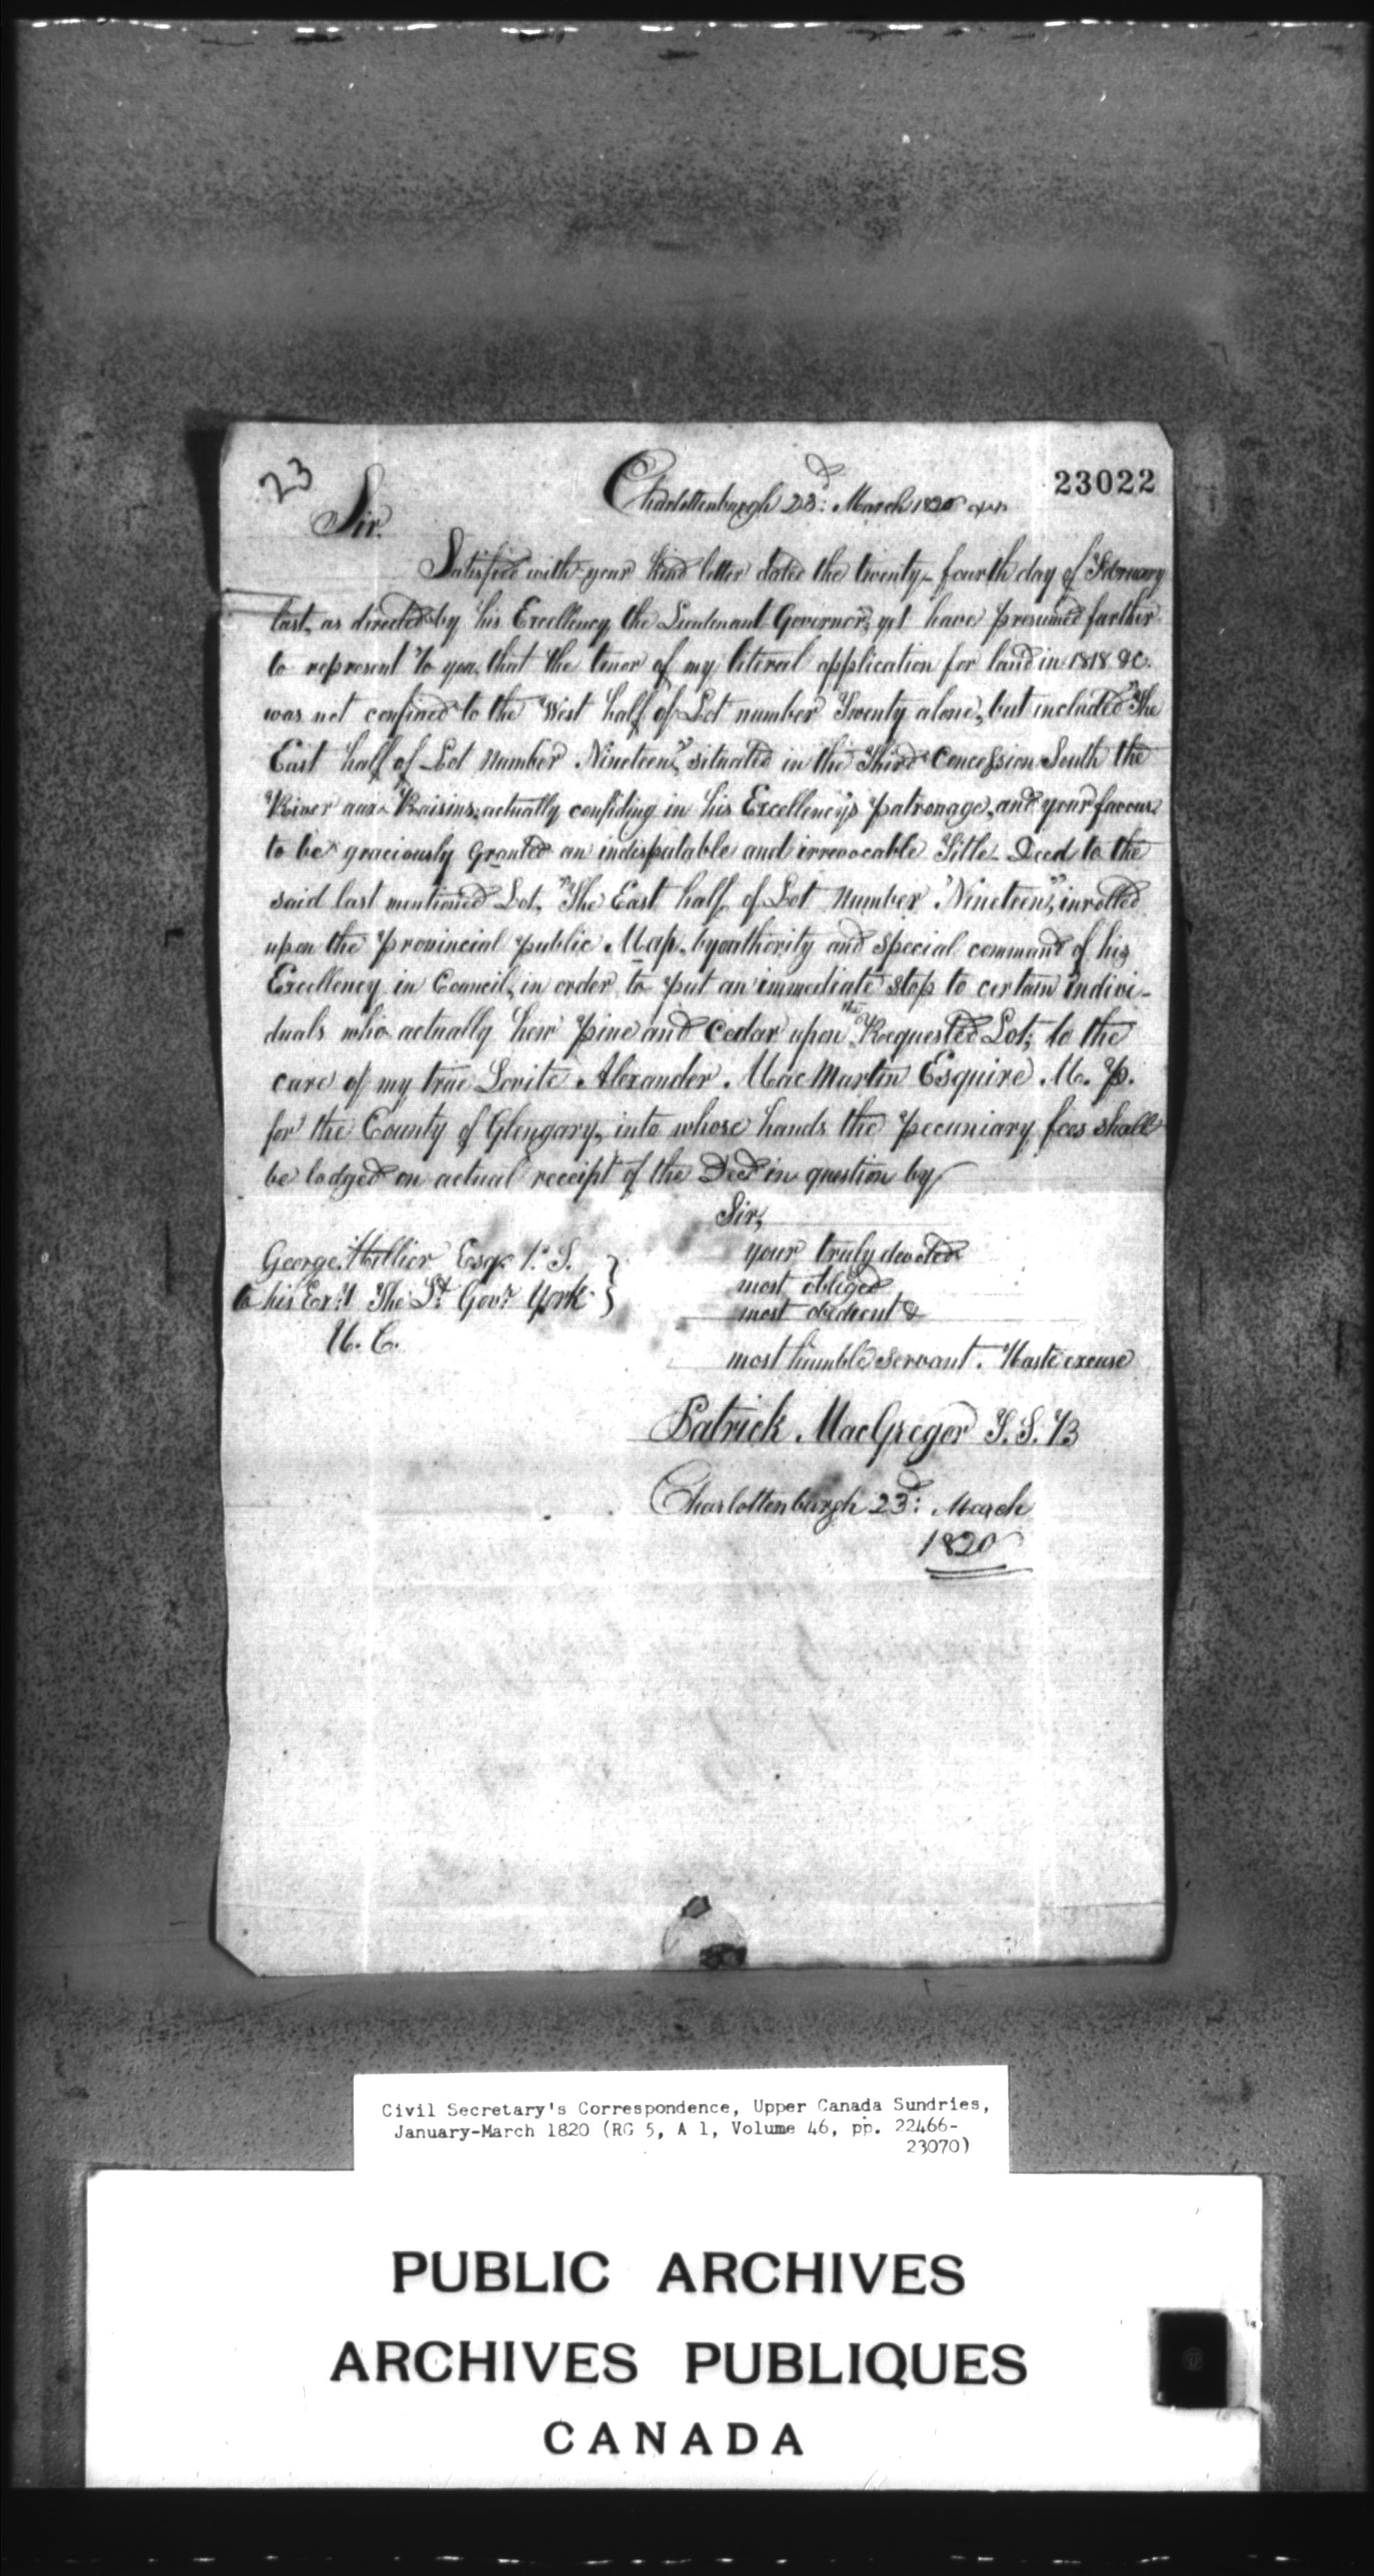 23
23022
Charlottenburgh 23d: March 1820
Sir.
Satisfied with your kind letter dated the twenty-fourth day of February
last, as directed by his Excellency the Lieutenant Governor, yet have presumed farther
to represent to you, that the tenor of my literal application for land in 1818 &C.
was not confined to the West half of Lot number Twenty alone, but included "The
East half of Lot Number Nineteen", situated in the Third Concession South the
River aux Raisins; actually confiding in his Excellency's patronage, and your favour
to be graciously Granted an indisputable and irrevocable Title-Deed to the
said last mentioned Lot, "The East half of Lot Number Nineteen", inrolled
upon the Provincial public Map, by authority and special command of his
Excellency in Council, in order to put an immediate stop to certain Indivi-
duals who actually hew pine and Cedar upon the Requested Lot; to the
care of my true Alexander MacMartin Esquire M. P.
for the County of Glengary, into whose hands the pecuniary fees shall
be lodged on actual receipt of the Deed in question by
Sir,
your truly devoted
most obliged
most obedient &
most humble servant. Haste excuse
George Hillier Esqr. P. S.
to his Exy The Lt. Govr. York
U. C.
Patrick MacGregor
Charlottenburgh 23d: March
1820
Civil Secretary's Correspondence, Upper Canada Sundries,
January-March 1820 (RG 5, A 1, Volume 46, pp. 22466-
23070)
PUBLIC ARCHIVES
ARCHIVES PUBLIQUES
CANADA